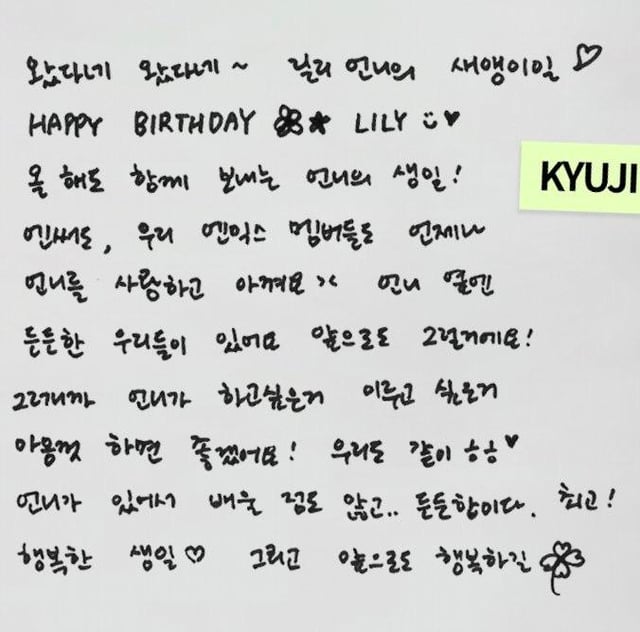 왔다네 왔다네~ 릴리 언니의 새앵이일♡
HAPPY BIRTHDAY ★ LILY ♥
올 해도 함께 보내는 언니의 생일!
KYUJI
엔써도, 우리 엔믹스 멤버들도 언제나
언니를 사랑하고 아껴요 >< 언니 옆엔
든든한 우리들이 있어요 앞으로도 그럴거에요!
그러니까 언니가 하고싶은거 이루고 싶은거
마음껏 하면 좋겠어요! 우리도 같이 ㅎㅎ♥
언니가 있어서 배울 점도 많고.. 든든함이다. 최고!
행복한 생일♡ 그리고 앞으로도 행복하길